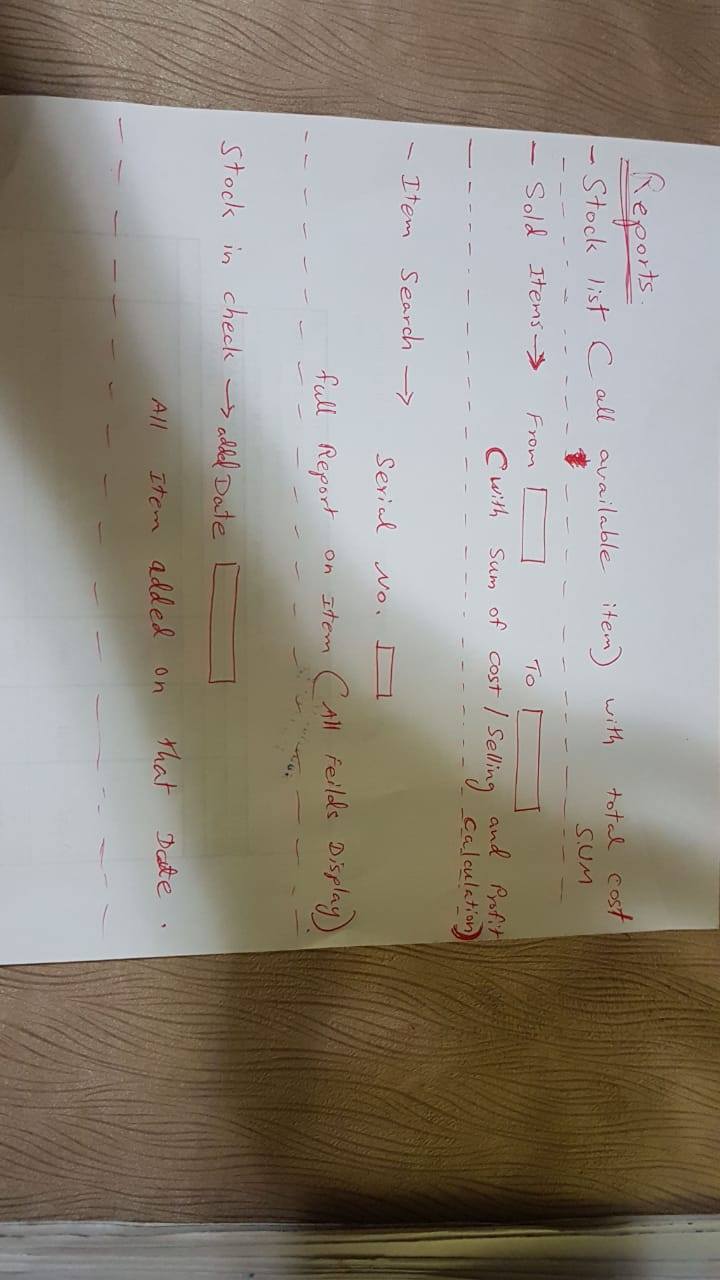 Reports.
- Stock list ( all available item) with total cost
SUM
- Sold Items → From To
( with sum of cost / Selling and Profit
calculation)
- Item Search → Serial No.
full Report on Item ( All Feilds Display).
Stock in check → added Date
All Item added on that Date.